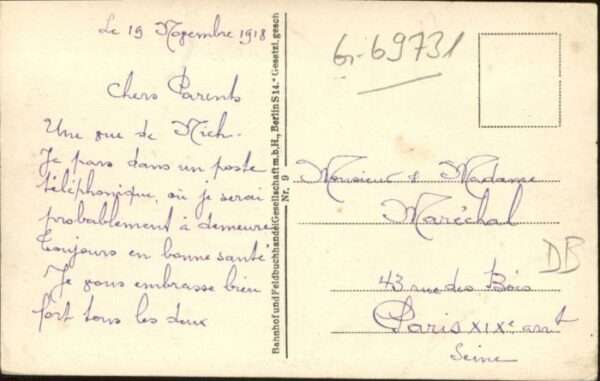 Le 19 Novembre 1918
Chers Parents
Une vue de Mich.
Je pars dans un poste
téléphonique, où je serai
probablement à demeure
Toujours en bonne santé
Je vous embrasse bien
fort tous les deux
Bahnhof und Feldbuchhandel Gesellschaft m.b.H., Berlin S 14. * Gesetzl. gesch
Nr. 9
6-69731
Monsieur & Madame
Maréchal
43 rue des Bois
Paris XIXe arrt
Seine
DB